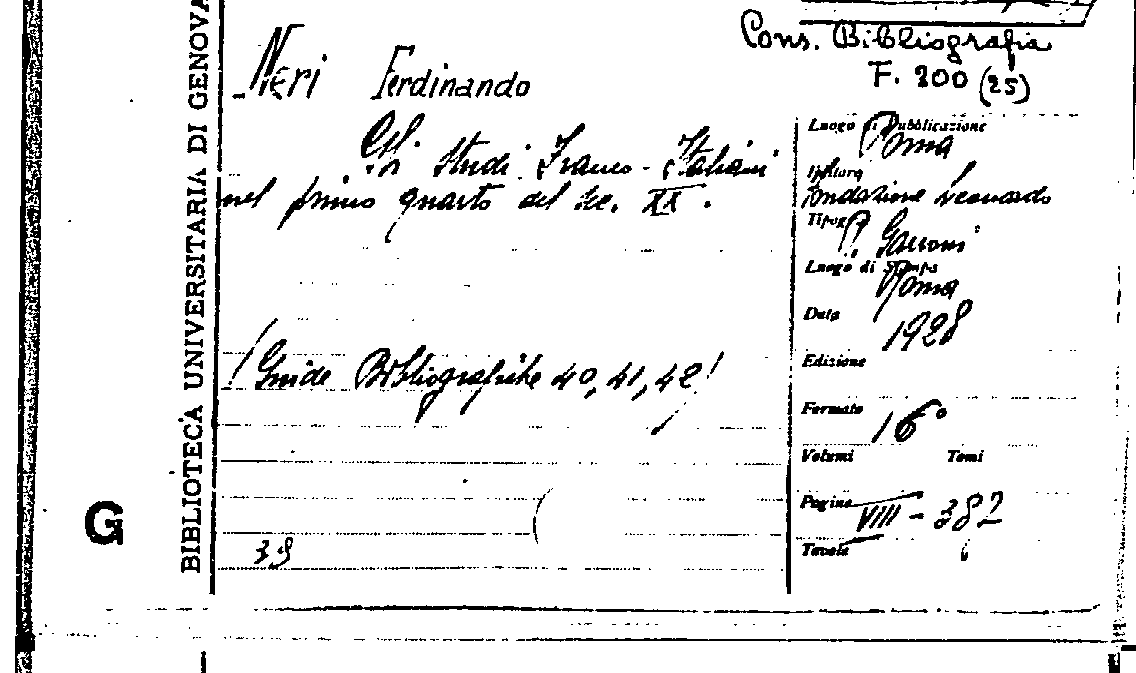 Cons. Bibliografia
F. 200 (25)
BIBLIOTECA UNIVERSITARIA DI GENOVA
Neri Ferdinando
Gli studi Franco-Italiani
nel primo quarto del sec. XX.
/Guide Bibliografiche 40, 41, 42/
39
G
Luogo di Pubblicazione Roma
Editore
Fondazione Leonardo
Tipogr. P. Garroni
Luogo di Stampa Roma
Data 1928
Edizione
Formato 16°
Volumi Tomi
Pagine VIII - 382
Tavole